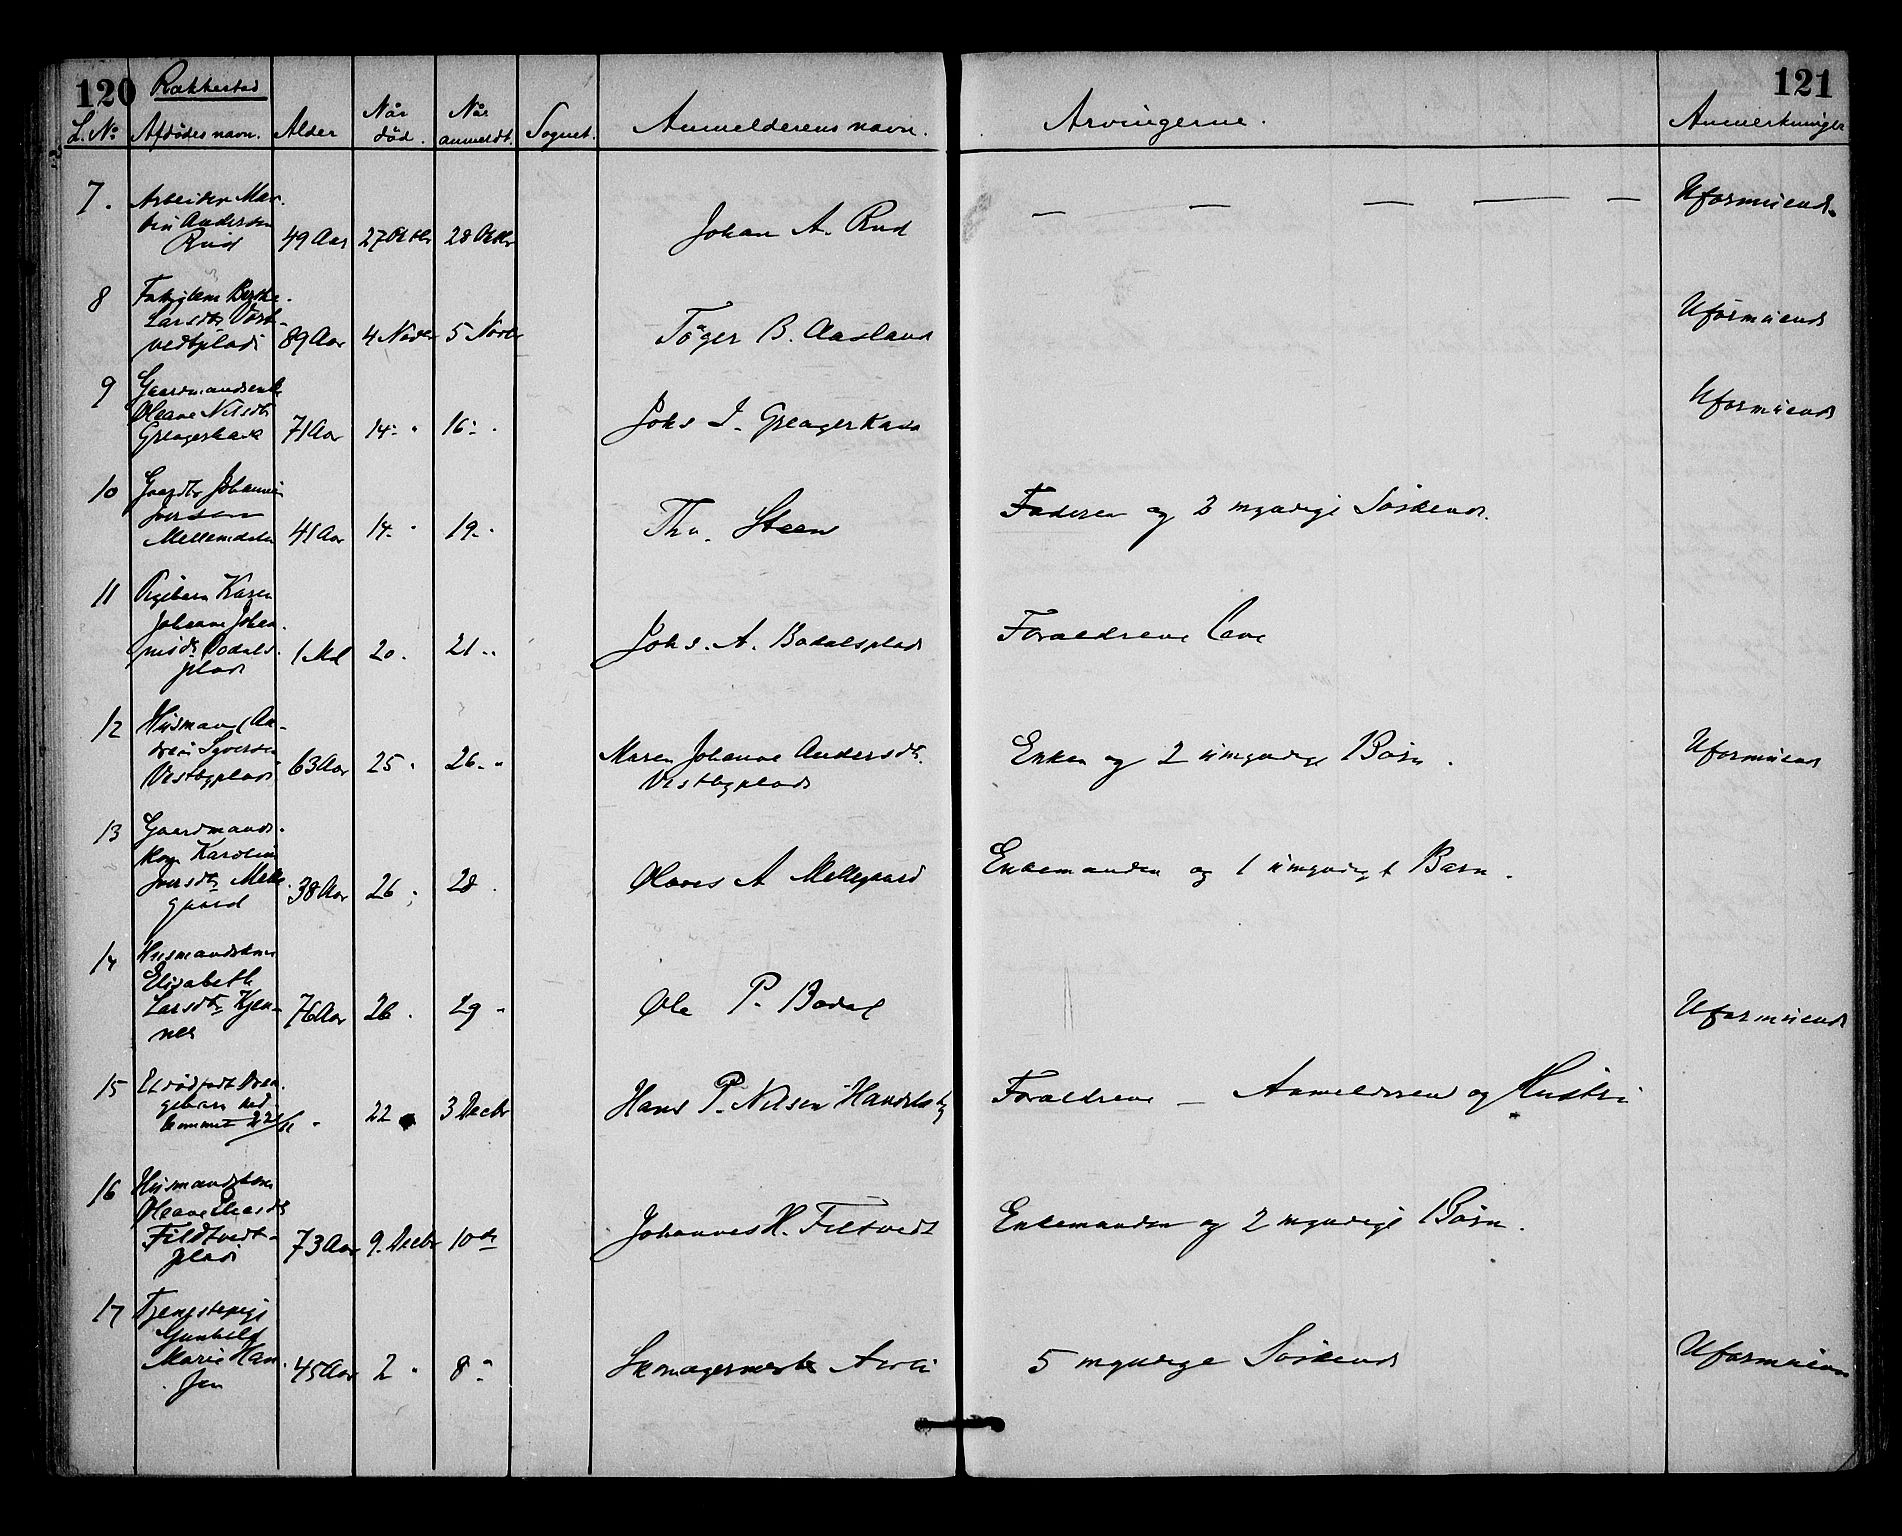 120 Rakkestad 121
L. No Afdødes navn. Alder Når død. Når anmeldt. Sognet. Anmelderens navn. Arvingerne. Anmerkninger
7. Arbeider Mar-
tin Andersen
Rud 49 Aar 27 Oktbr 28 Oktbr Johan A. Rud — — — — — Uformuende
8 Fattiglem Berthe
Larsdtr
plads 89 Aar 4 Novbr 5 Novbr Töger B. Aasland Uformuende
9 Gaardmandsenke
Oleane Nilsdtr
Grengerkasa 71 Aar 14 " 16 " Johs I. Uformuende
10 Gaardbr Johannes
Iversen
Mellemdalen 41 Aar 14 " 19 " Th. Steen Faderen og myndige Søskende.
11 Pigebarn Karen
Johanne Johan-
nisdtr Bodals-
plads 1 Md 20 " 21 " Johs. A. Bodalsplads Forældrene leve
12 Husmand An-
dreas Syversen
Vestbyplads 63 Aar 25 " 26 " Maren Johanne Andersdtr.
Vestbyplads Enken og 2 umyndige Børn. Uformuende
13 Gaardmands-
kone Karoline
Iversdtr Melle-
gaard 38 Aar 26 " 28 " Olaves A Mellegaard Enkemanden og 1 umyndigt Barn.
14 Husmandskone
Elisabeth
Larsdtr
76 Aar 26 " 29 " Ole P. Bodal Uformuende
15 Et dødfødt Dren-
gebarn ned-
kommet 22/11 " 22 3 Decbr Hans P. Nilsen Forældrene — Anmelderen og Hustru
16 Husmandskone
Oleane
Fildtvedt-
plads 73 Aar 9. Decbr 10 de Johannes H. Filtvedt Enkemanden og 2 myndige Børn.
17 Tjenestepige
Gunhild
Marie Han-
sen 45 Aar 2 " 8 " Skomagermester 5 myndige Søskende Uformuende